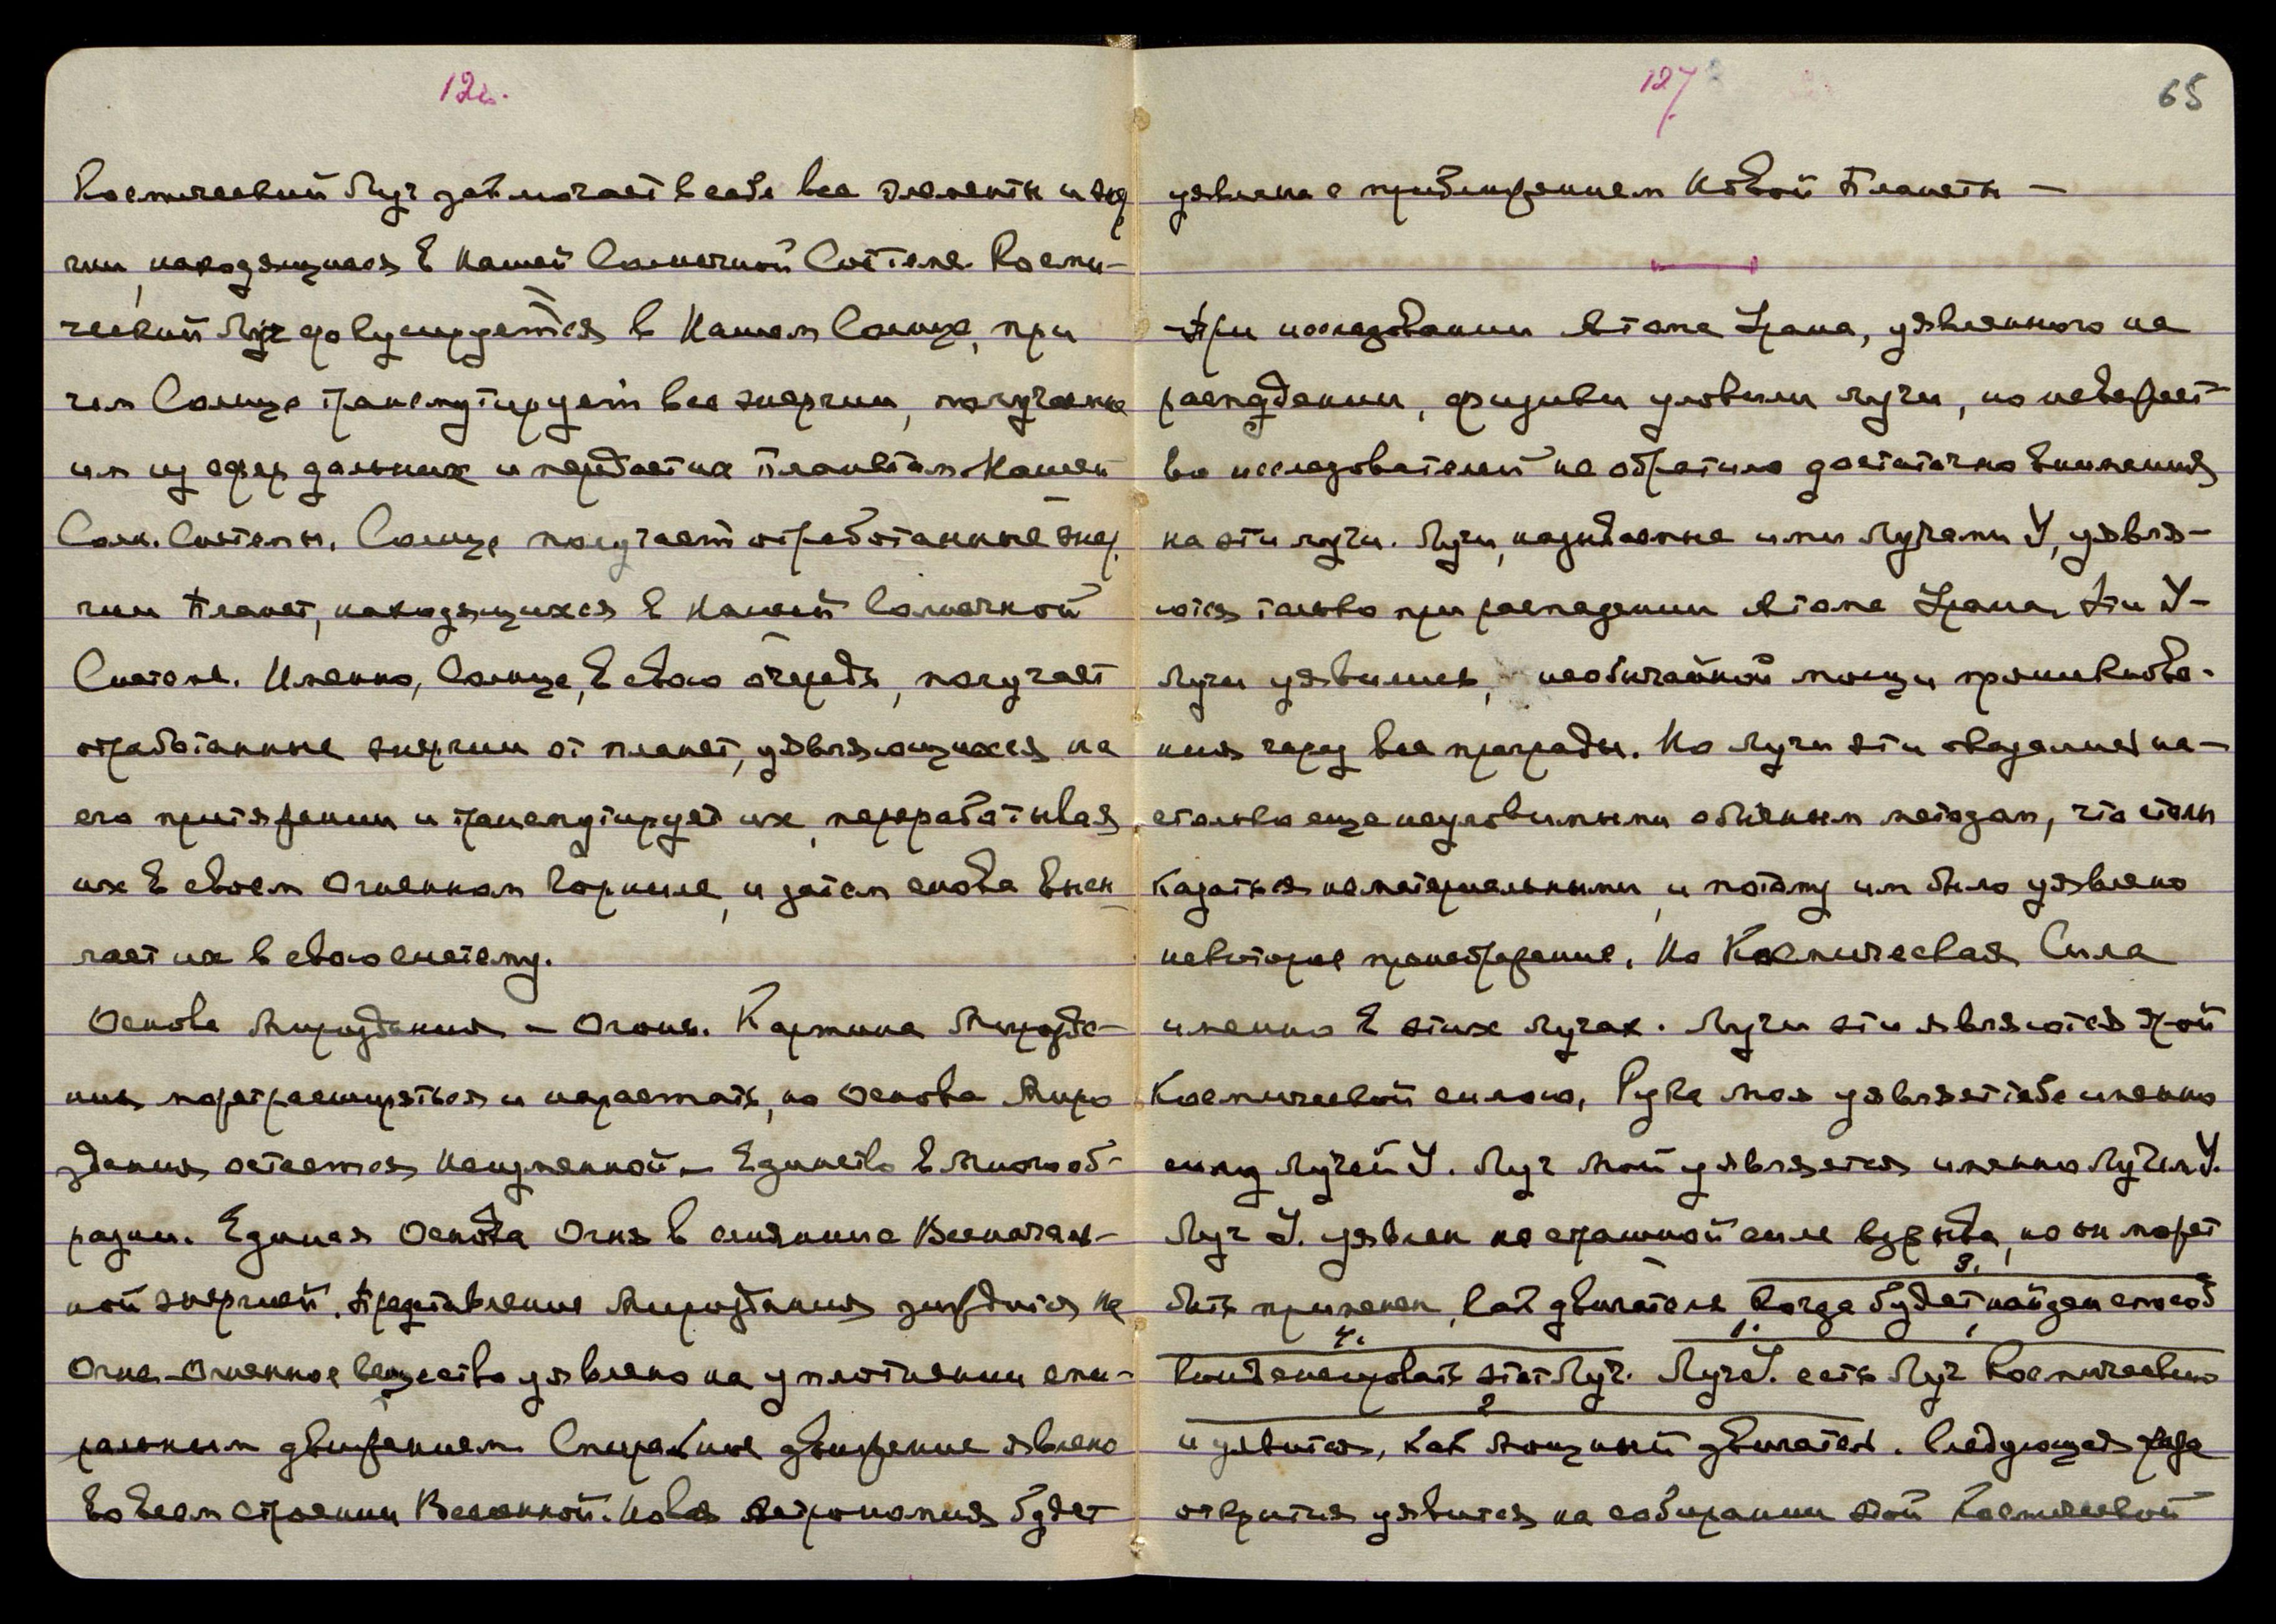 126.
Космический Луч заключает в себе все элементы и энер
гии, находящиеся в нашей Солнечной Системе. Косми-
ческий Луч фокусируется в Нашем Солнце, при
чем Солнце трансмутирует все энергии, получаемые
им из сфер дальних и передает их Планетам Нашей
Солн. Системы. Солнце получает отработанные энер.
гии Планет, находящихся в нашей Солнечной
Системе. Именно, Солнце, в свою очередь, получает
отработанные энергии от планет, уявляющихся на
его притяжении и трансмутирует их, перерабатывая
их в своем Огненном Горниле, и затем снова высы
лает их в свою систему.
Основа Мироздания – Огонь. Картина Мирозда-
ния может расширяться и нарастать, но Основа Миро
здания остается неизменной – Единство в Многооб-
разии. Единая Основа Огня в слиянии с Всеначаль-
ной энергией. Представление Мироздания зиждится на
Огне. Огненное вещество уявлено на уплотнении спи-
ральным движением. Спиральное движение явлено
во всем строении Вселенной. Новая Астрономия будет
127
65
уявлена с приближением Новой Планеты –
При исследовании Атома Урана, уявленного на
распадении, физики уловили лучи, но невежест
во исследователей не обратило достаточно внимания
на эти лучи. Лучи, называемые ими Лучами У, уявля-
ются только при распадении Атома Урана. Эти У-
Лучи уявились, необычайной мощи проникнове-
ния через все преграды. Но Лучи эти оказались на-
столько еще неуловимыми обычным методам, что стали
казаться нематериальными, и потому им было уявлено
некоторое пренебрежение. Но Космическая Сила
именно в этих Лучах. Лучи эти являются этой
Космической силою. Рука Моя уявляет тебе именно
силу Лучей У. Луч Мой уявляется именно Лучем У.
Луч У. уявлен на страшной силе взрыва, но он может
3.
быть применен, как двигатель, когда будет найден способ
4. 1.
конденсировать этот Луч. Луч У. есть Луч Космический
2
и уявится, как мощный двигатель. Следующая
открытия уявится на собирании этой Космической